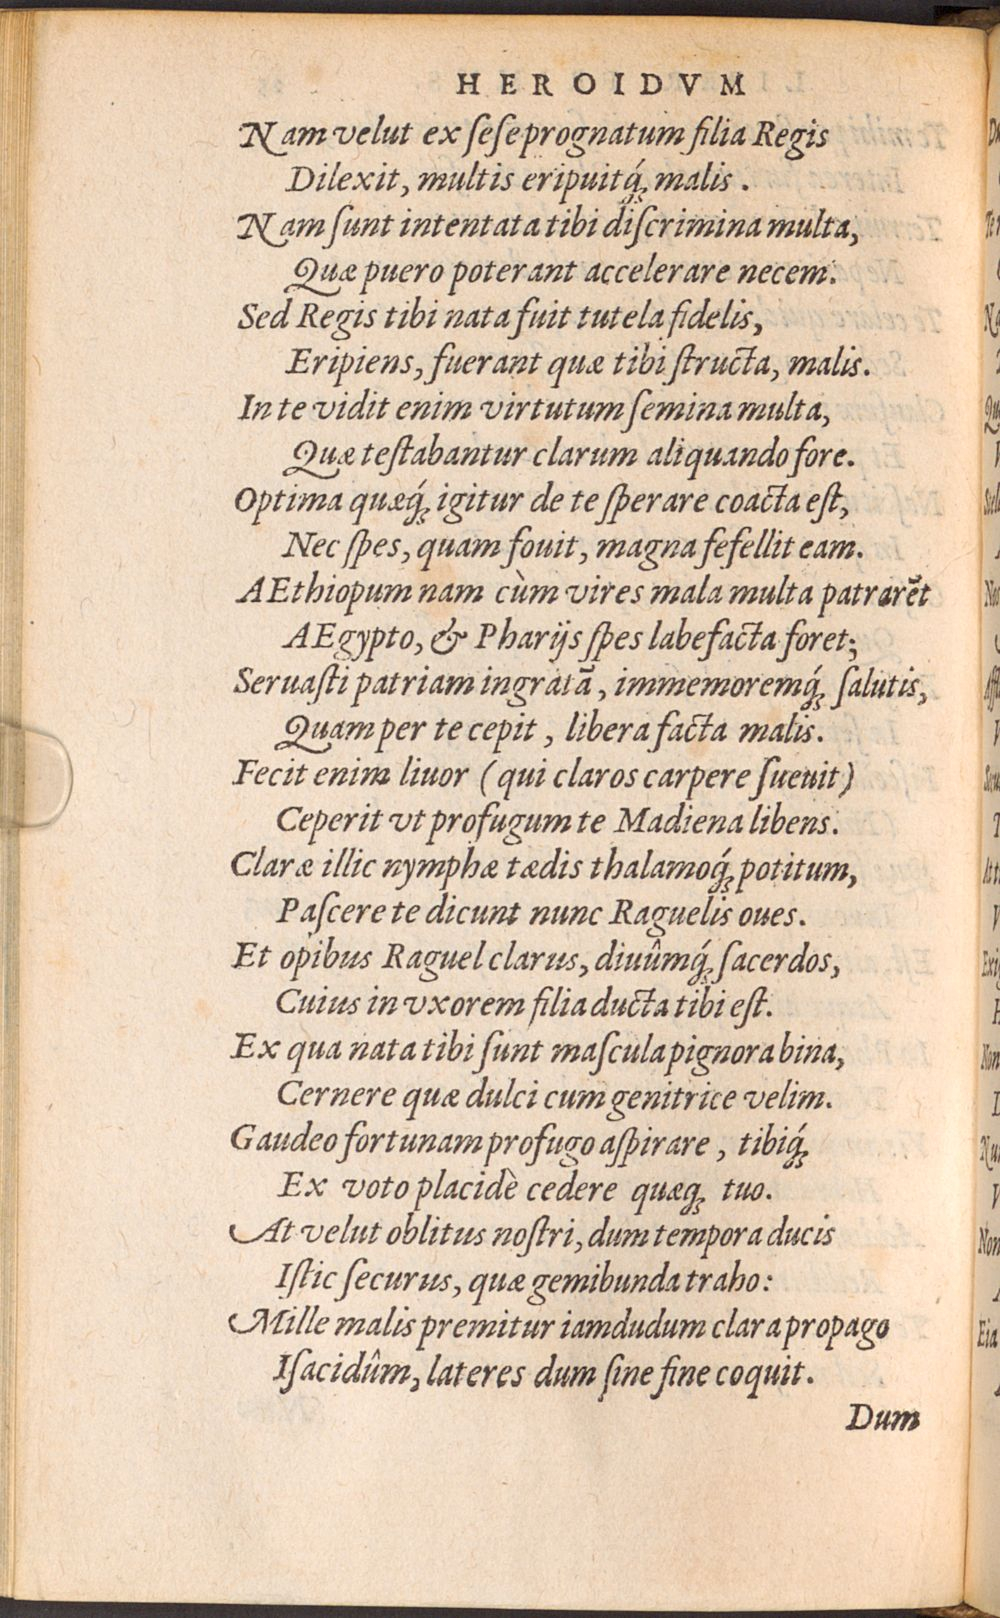 HEROIDVM
Nam velut ex ſeſe prognatum filia Regis
Dilexit, multis eripuitq́; malis.
Nam ſunt intentata tibi diſcrimina multa,
Quæ puero poterant accelerare necem.
Sed Regis tibi nata fuit tutela fidelis,
Eripiens, fuerant quæ tibi ſtructa, malis.
In te vidit enim virtutum ſemina multa,
Quæ teſtabantur clarum aliquando fore.
Optima quæq́; igitur de te ſperare coacta eſt,
Nec ſpes, quam fouit, magna fefellit eam.
AEthiopum nam cùm vires mala multa patrarēt
AEgypto, & Pharijs ſpes labefacta foret;
Seruaſti patriam ingratā, immemoremq́; ſalutis,
Quam per te cepit, libera facta malis.
Fecit enim liuor (qui claros carpere ſueuit)
Ceperit vt profugum te Madiena libens.
Claræ illic nymphæ tædis thalamoq́; potitum,
Paſcere te dicunt nunc Raguelis oues.
Et opibus Raguel clarus, diuûmq́; ſacerdos,
Cuius in vxorem filia ducta tibi eſt.
Ex qua nata tibi ſunt maſcula pignora bina,
Cernere quæ dulci cum genitrice velim.
Gaudeo fortunam profugo aſpirare, tibiq́;
Ex voto placidè cedere quæq; tuo.
At velut oblitus noſtri, dum tempora ducis
Iſtic ſecurus, quæ gemibunda traho:
Mille malis premitur iamdudum clara propago
Iſacidûm, lateres dum ſine fine coquit.
Dum